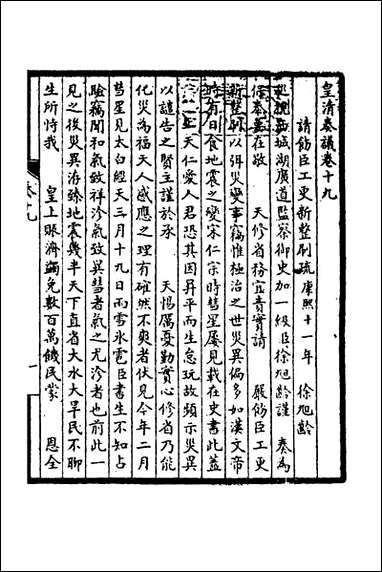 皇清奏議卷十九
請飭臣工更新整刷疏康熙十一年 徐旭齡
巡視兩城湖廣道監察御史加一級臣徐旭齡謹 奏為
修奉益在敬 天修省務宜責實請 嚴飭臣工更
新整刷以弭災變事竊惟極治之世災異偏多如漢文帝
時有日食地震之變宋仁宗時彗星屢見載在史書此蓋
天仁愛人君恐其因昇平而生怠玩故頻示災異
以譴告之賢主謹於承 天惕厲憂勤實心修省乃能
化災為福天人感應之理有確然不爽者伏見今年二月
彗星見太白經天三月十九日雨雪氷雹臣書生不知占
驗竊聞和氣致祥沴氣致異彗者氣之尤沴者也前此一
見之後災異洊臻地震幾半天下直省大水大旱民不聊
生所恃我 皇上賑濟蠲免數百萬饑民蒙 恩全
奏十九
一